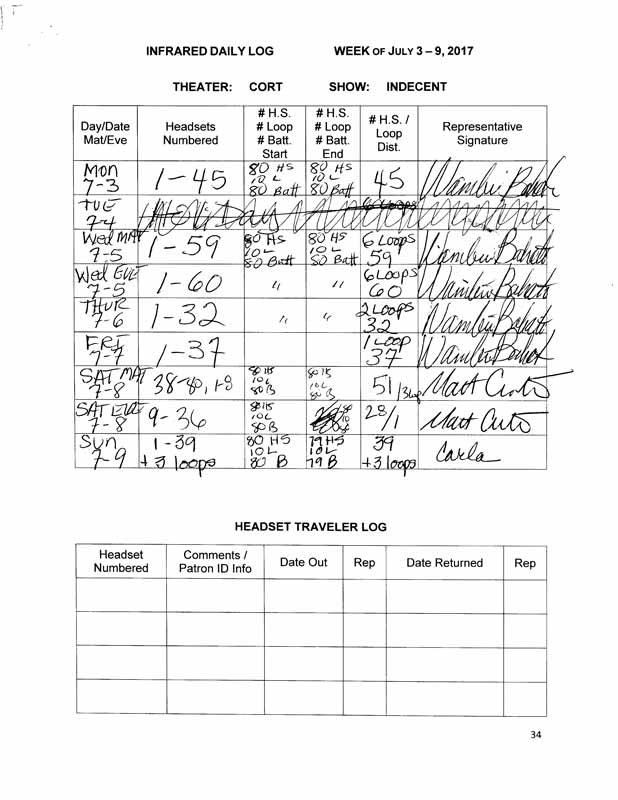 INFRARED DAILY LOG WEEK OF JULY 3 – 9, 2017
THEATER: CORT SHOW: INDECENT
Day/Date Mat/Eve Headsets Numbered # H.S. # Loop # Batt. Start # H.S. # Loop # Batt. End # H.S. / Loop Dist. Representative Signature
Mon 7-3 1-45 80 HS 10 L 80 Batt 80 HS 10 L 80 Batt 45
TUE 7-4 Holiday
Wed MAT 7-5 1-59 80 HS 10 L 80 Batt 80 HS 10 L 80 Batt 6 Loops 59
Wed EVE 7-5 1-60 " " 6 Loops 60
THUR 7-6 1-32 " " 2 Loops 32
FRI 7-7 1-37 1 Loop 37
SAT MAT 7-8 38-80, 1-8 80 HS 10 L 80 B 80 HS 10 L 80 B 51
SAT EVE 7-8 9-36 80 HS 10 L 80 B 28/1
Sun 7-9 1-39 +3 loops 80 HS 10 L 80 B 79 HS 10 L 79 B 39 +3 loops Carla
HEADSET TRAVELER LOG
Headset Numbered Comments / Patron ID Info Date Out Rep Date Returned Rep
34